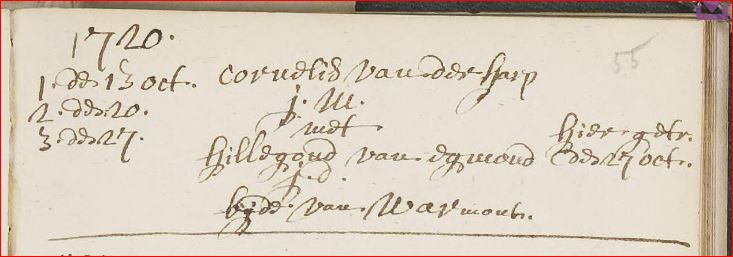 1720.
55
1. de 13 oct. Cornelis van der harp
2. den 20. j. M.
3. den 27. met hier getr.
hillegond van egmond den 27 oct.
j. d.
byde van Warmont.